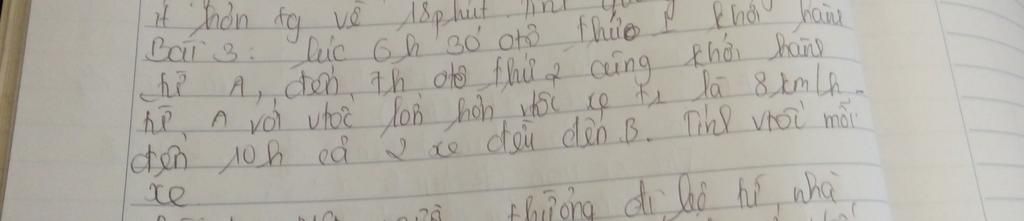 ít hơn tg về 18phút. Tính qu
Bài 3: Lúc 6h 30' ôtô thứ 1 khởi hành
từ A, đến 7h ôtô thứ 2 cũng khởi hành
từ A với vtốc lớn hơn vtốc xe t1 là 8km/h.
đến 10h cả 2 xe đều đến B. Tính vtốc mỗi
xe
thường đi bộ từ nhà